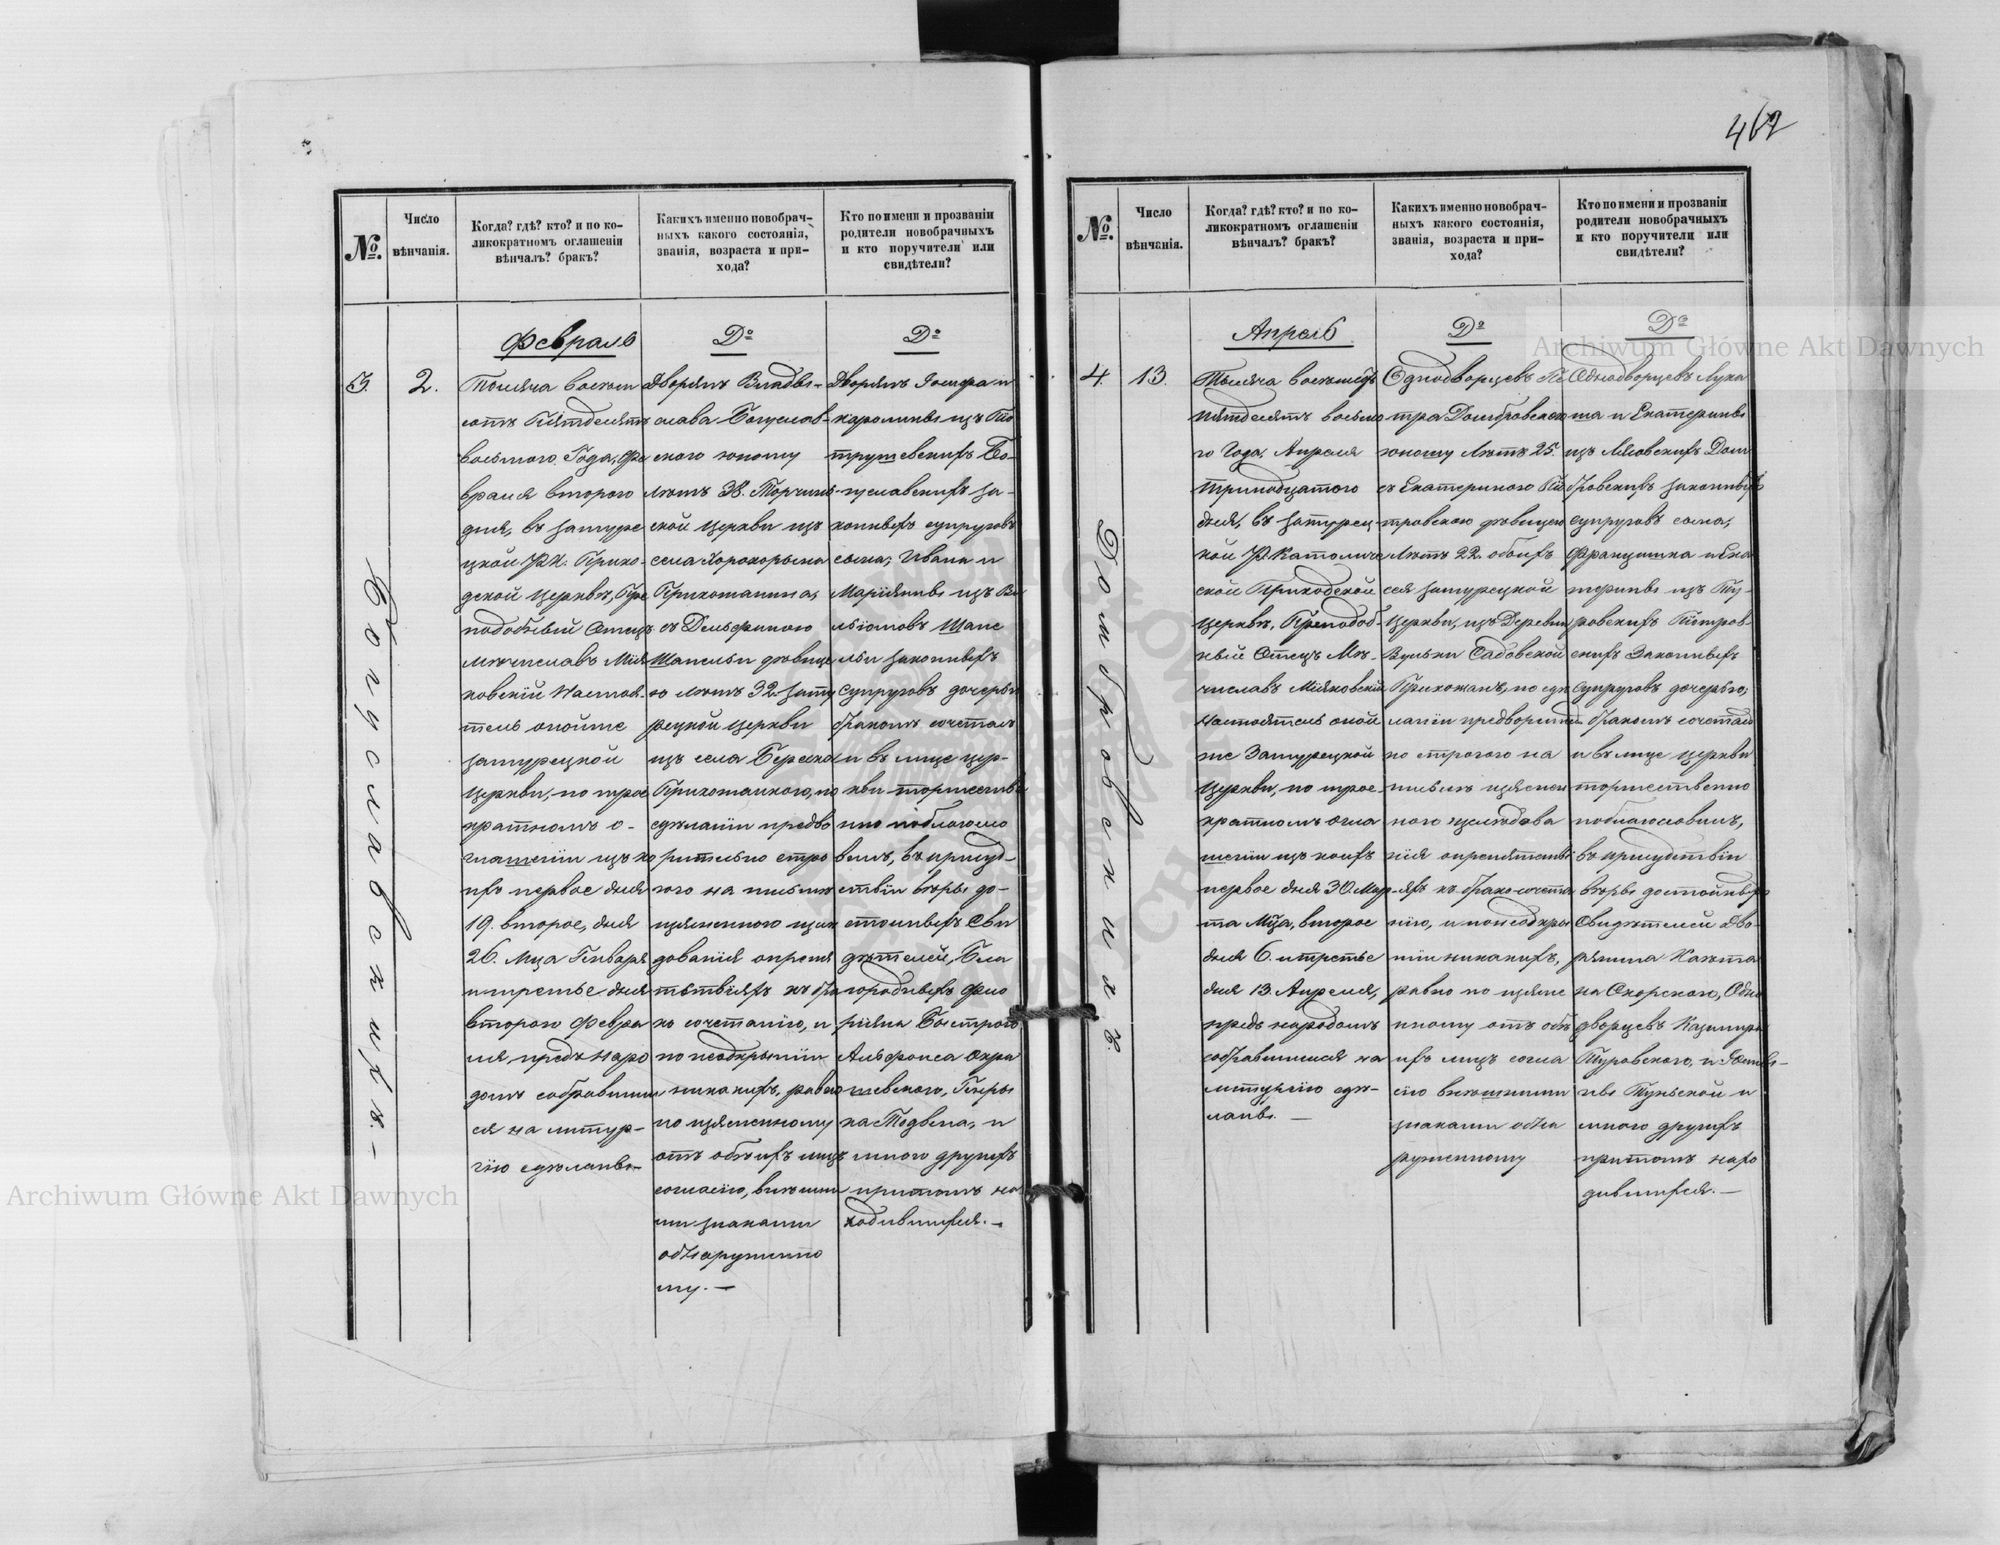 462
№.
Число
вѣнчанія.
Когда? гдѣ? кто? и по ко-
ликократномъ оглашеніи
вѣнчалъ? бракъ?
Какихъ именно новобрач-
ныхъ какого состоянія,
званія, возраста и при-
хода?
Кто по имени и прозванію
родители новобрачныхъ
и кто поручители или
свидѣтели?
3.
Богуславскихъ.–
2.
Февраль
Тысяча восем
сотъ Пятдесятъ
восьмого Года, Фе
враля второго
дня, въ Затуре
цкой Р.К. Прихо-
дской Церквѣ, Пре
подобный Отецъ
Мѣчиславъ Мія
ковскій Настоя-
тель оной же
Затурецкой
Церкви, по трое
кратномъ о-
глашеніи изъ ко
ихъ первое дня
19. второе, дня
26. Мца Генваря
и третье дня
второго Февра
ля предъ наро
домъ собравшим
ся на литур-
гію сдѣланы.–
Дº
Дворянъ Влады-
слава Богуслав-
ского юношу
лѣтъ 38. Торчинъ
ской Церкви изъ
села Хорохорына
Прихожанина,
съ Дельфиною
Шапельи дѣвице
ю лѣтъ 32. Зату
рецкой Церкви
изъ села Береска
Прихожанкою, по
сдѣланіи предва
рительно стро
гого на письмѣ
изъясненного изслѣ
дованія опрепя
тствіяхъ къ бра
ко сочетанію, и
по неоткрытіи
никакихъ, равно
по изъясненному
отъ обоихъ лицъ
согласію, внѣшни
ми знаками
обнаруженно
му.–
Дº
Дворянъ Іосифа и
Каролины изъ Пе
трушевскихъ Бо-
гуславскихъ за-
конныхъ супруговъ
сына; Ивана и
Маріянны изъ Ви
льіомовъ Шапе
льи законныхъ
Супруговъ дочерью
бракомъ сочеталъ
и въ лице цер-
кви торжестве
нно поблагосло
вилъ, въ присут-
ствіи вѣры до-
стойныхъ Сви
дѣтелей, Бла
городныхъ Фло
ріяна Быстрого
Альфонса Окра
шевского, Генры
ка Подвина, и
много другихъ
притомъ на
ходившихся.–
№.
Число
вѣнчанія.
Когда? гдѣ? кто? и по ко-
ликократномъ оглашеніи
вѣнчалъ? бракъ?
Какихъ именно новобрач-
ныхъ какого состоянія,
званія, возраста и при-
хода?
Кто по имени и прозванію
родители новобрачныхъ
и кто поручители или
свидѣтели?
4.
Домбровскихъ
13.
Апрель
Тысяча восемьсотъ
пятдесятъ восьмо
го Года, Апреля
тринадцатого
дня, въ Затурец-
кой Р. Католиче
ской Приходской
Церквѣ, Преподоб-
ный Отецъ Мѣ-
числавъ Міяковскій
Настоятель оной
же Затурецкой
Церкви, по трое-
кратномъ огла
шеніи изъ коихъ
первое дня 30. Мар-
та Мца, второе
дня 6. и третье
дня 13. Апреля,
предъ народомъ
собравшимся на
литургію сдѣ-
ланы.–
Дº
Однодворцевъ Пе
тра Домбровского
юношу Лѣтъ 25.
съ Екатериною Пе
тровскою дѣвицею
Лѣтъ 22. обоихъ
сея Затурецкой
Церкви, изъ Деревни
Вульки Садовской
Прихожанъ, по сдѣ
ланіи предварител
но строгого на
письмѣ изъяснен
ного изслѣдова
нія опрепятстві
яхъ къ брако-сочета
нію, и понеоткры
тіи никакихъ,
равно по изъясне
нному отъ обо
ихъ лицъ согла
сію внѣшними
знаками обна
руженному
Дº
Однодворцевъ Лука
ша и Екатерины
изъ Мяковскихъ Дом
бровскихъ законныхъ
супруговъ сына,
Францишка и Ека
терины изъ Ту-
ровскихъ Петров
скихъ Законныхъ
Супруговъ дочерью;
бракомъ сочеталъ
и въ лице Церкви
торжественно
поблагословилъ,
въ присутствіи
вѣры достойныхъ
Свидѣтелей Дво-
рянина Каэта
на Скорского, Одно
дворцевъ Казимира
Туровского, и
много другихъ
притомъ нахо
дившихся.–
Archiwum Główne Akt Dawnych
Archiwum Główne Akt Dawnych